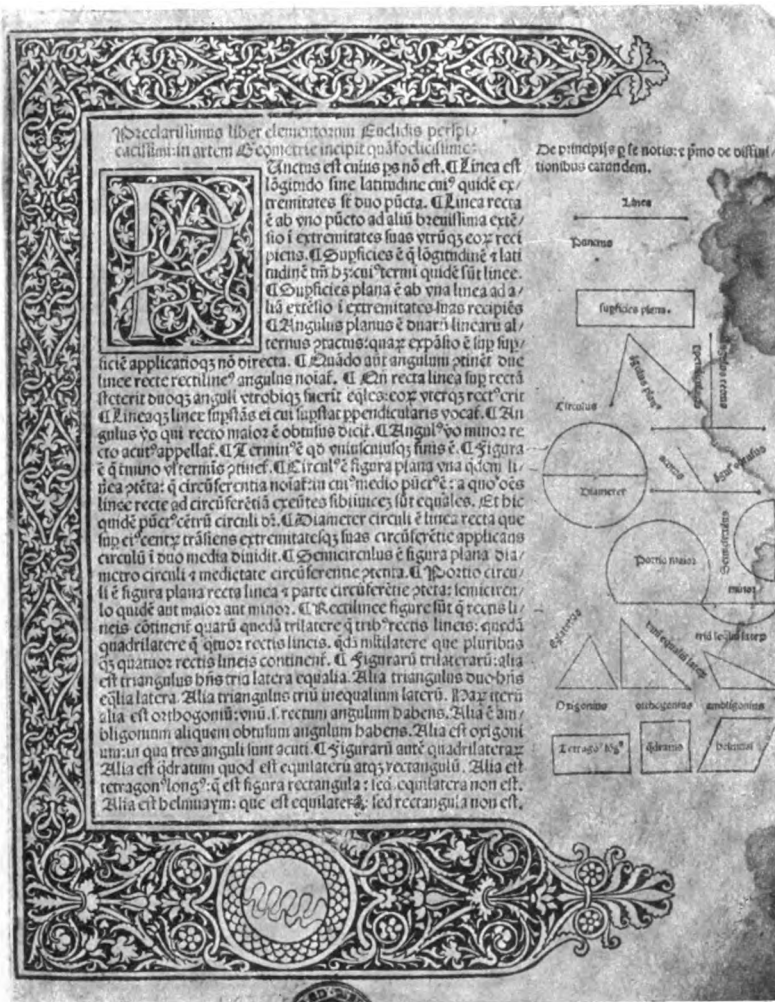 Preclarissimus liber elementorum Euclidis perspi/
cacissimi: in artem Geometrie incipit quãfoelicissime:
Punctus est cuius ps nõ est. ¶ Linea est
lõgitudo sine latitudine cuiꝰ quidẽ ex/
tremitates st duo pũcta. ¶ Linea recta
ẽ ab vno pũcto ad aliũ breuissima extẽ/
sio ĩ extremitates suas vtrũqꝫ eoꝝ reci
piens. ¶ Supficies ẽ q̃ lõgitudinẽ ⁊ lati
tudinẽ tm̃ hꝫ: cuiꝰ termi quidẽ sũt linee.
¶ Supficies plana ẽ ab vna linea ad a/
liã extẽsio ĩ extremitates suas recipiẽs
¶ Angulus planus ẽ duarũ linearũ al/
ternus ꝓtactus: quaꝝ expãsio ẽ sup sup/
ficiẽ applicatioqꝫ nõ directa. ¶ Quãdo aũt angulum ꝓtinẽt due
linee recte rectilineꝰ angulus noiaꝶ. ¶ Qñ recta linea sup rectã
steterit duoqꝫ anguli vtrobiqꝫ fuerit eq̃les: eoꝝ vterqꝫ rectꝰ erit
¶ Lineaqꝫ linee supstãs ei cui supstat ppendicularis vocaꝶ. ¶ An
gulus ṽo qui recto maior ẽ obtusus diciꝶ. ¶ Angulꝰ ṽo minor re
cto acutꝰ appellaꝶ. ¶ Terminꝰ ẽ qḋ vniuscuiusqꝫ finis ẽ. ¶ Figura
ẽ q̃ tmino vl̓ termis ꝓtineꝶ. ¶ Circulꝰ ẽ figura plana vna qdem li/
nea ꝓtẽta: q̃ circũferentia noiaꝶ: in cuiꝰ medio pũctꝰ ẽ: a quo oẽs
linee recte ad circũferẽtiã exeũtes sibiinuiceꝫ sũt equales. Et hic
quidẽ pũctꝰ cẽtrũ circuli dꝛ. ¶ Diameter circuli ẽ linea recta que
sup eiꝰ centꝝ trãsiens extremitatesqꝫ suas circũferẽtie applicans
circulũ ĩ duo media diuidit. ¶ Semicirculus ẽ figura plana dia/
metro circuli ⁊ medietate circũferentie ꝓtenta. ¶ Portio circu/
li ẽ figura plana recta linea ⁊ parte circũferẽtie ꝓtẽta: semicircu/
lo quidẽ aut maior aut minor. ¶ Rectilinee figure sũt q̃ rectis li/
neis cõtinenꝶ quarũ quedã trilatere q̃ tribꝰ rectis lineis: quedã
quadrilatere q̃ qtuor rectis lineis. qdã mltilatere que pluribus
qꝫ quatuor rectis lineis continenꝶ. ¶ Figurarũ trilaterarũ: alia
est triangulus hñs tria latera equalia. Alia triangulus duo hñs
eq̃lia latera. Alia triangulus triũ inequalium laterũ. Haꝝ iterũ
alia est orthogoniũ: vnũ .s. rectum angulum habens. Alia ẽ am/
bligonium aliquem obtusum angulum habens. Alia est oxigoni
um: in qua tres anguli sunt acuti. ¶ Figurarũ autẽ quadrilateraꝝ
Alia est q̃dratum quod est equilaterũ atqꝫ rectangulũ. Alia est
tetragonꝰ longꝰ: q̃ est figura rectangula: sed equilatera non est.
Alia est helmuaym: que est equilatera: sed rectangula non est.
De principijs ꝑ se notis: ⁊ pmo de diffini/
tionibus earandem.
Linea
Punctus
supficies plana.
Circulus
Diameter
Portio maior
Semicirculus
minor
Oxigonius orthogonius ambligonius
Tetragoꝰ lõgꝰ q̃dratus helmuai